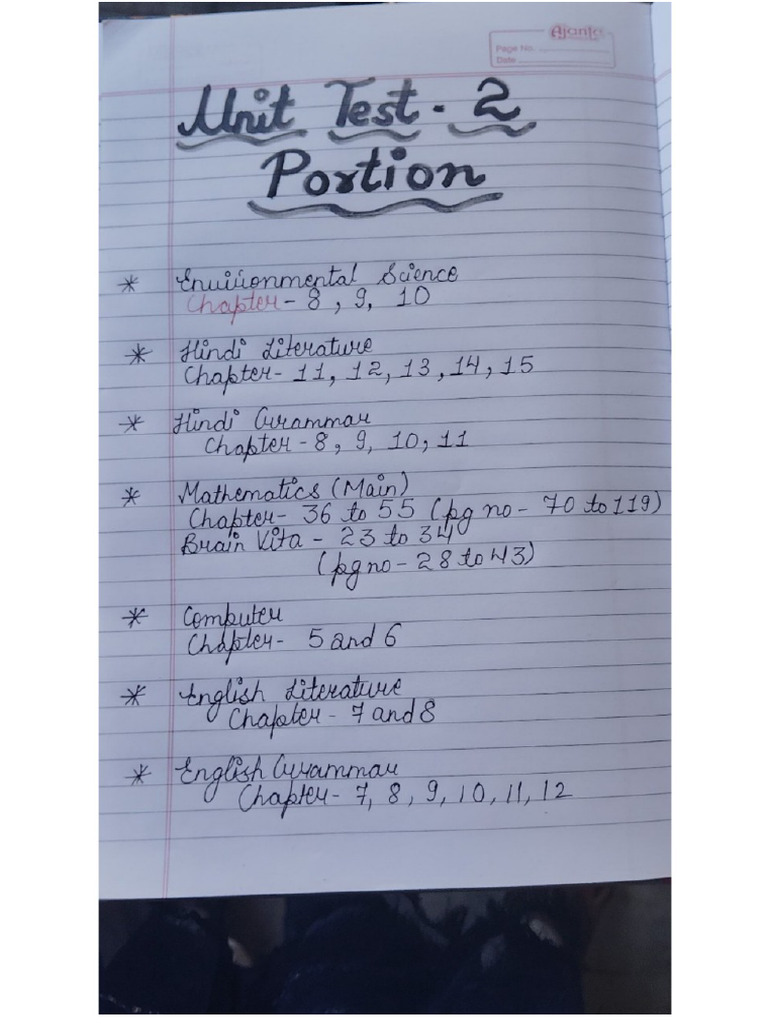 Ajanta
Page No.
Date
Unit Test - 2
Portion
* Environmental Science
Chapter - 8, 9, 10
* Hindi Literature
Chapter - 11, 12, 13, 14, 15
* Hindi Grammar
Chapter - 8, 9, 10, 11
* Mathematics (Main)
Chapter - 36 to 55 (pg no - 70 to 119)
Brain Vita - 23 to 34
(pg no - 28 to 43)
* Computer
Chapter - 5 and 6
* English Literature
Chapter - 7 and 8
* English Grammar
Chapter - 7, 8, 9, 10, 11, 12